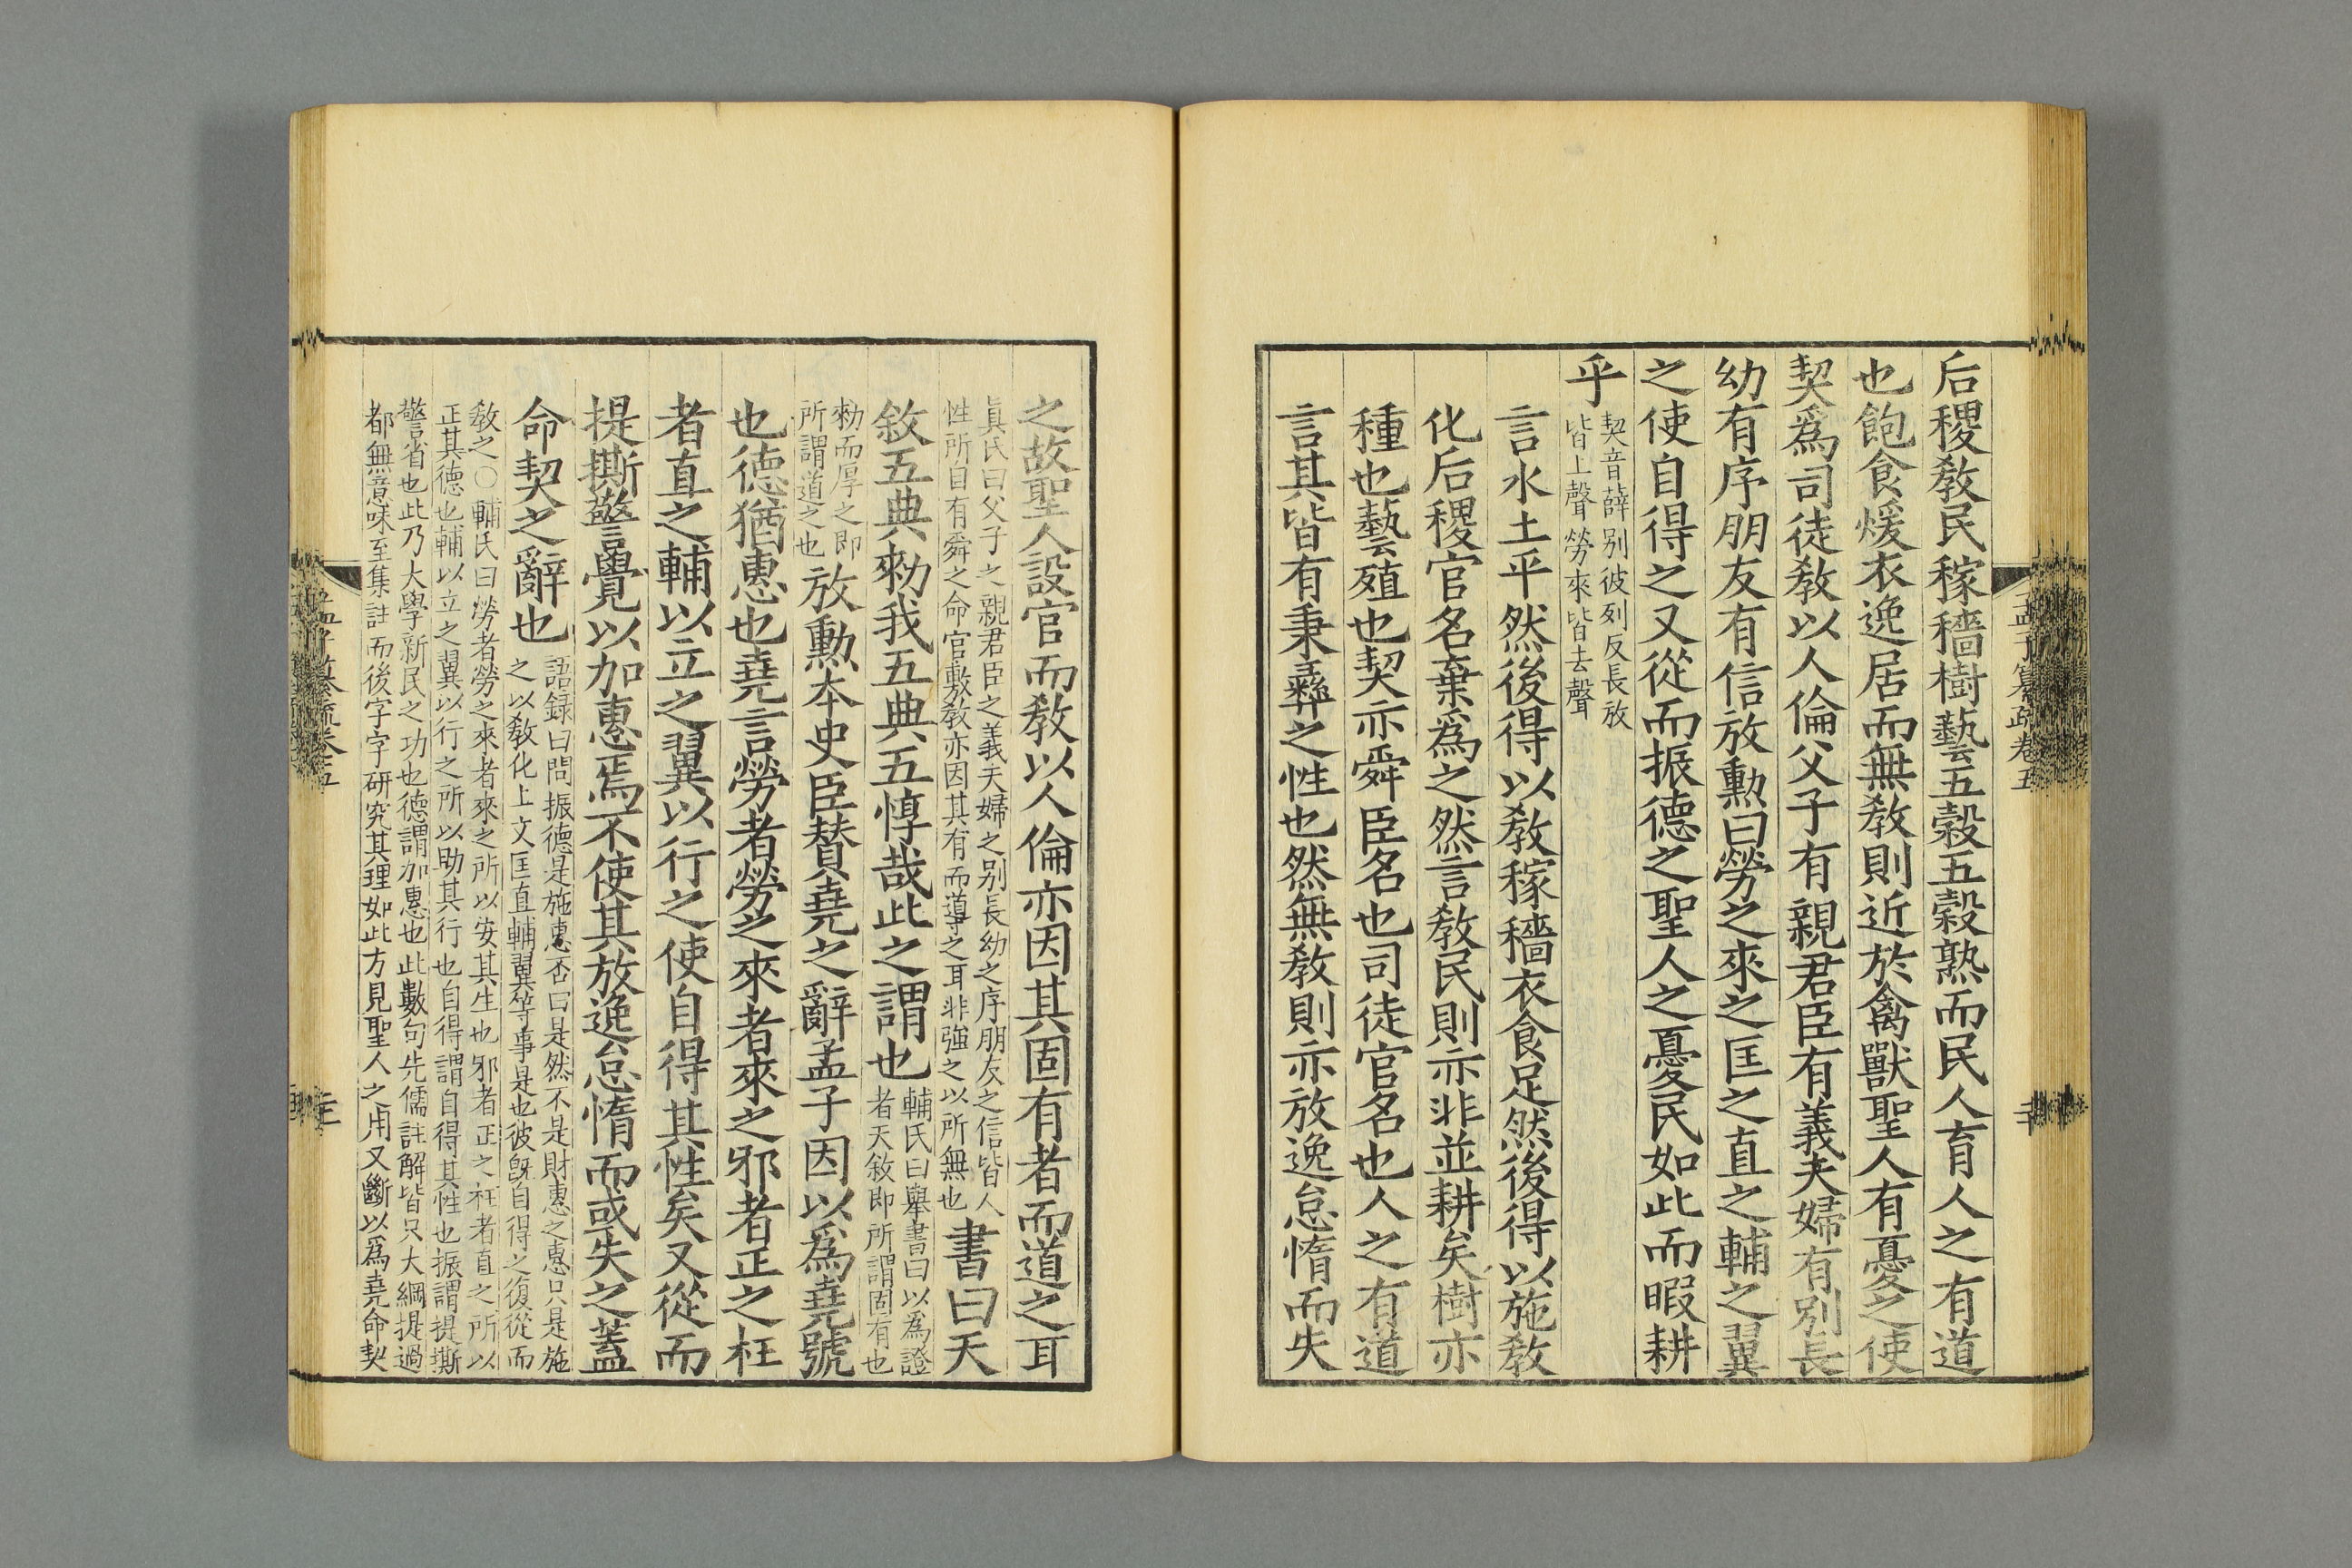 后稷教民稼穡樹藝五穀五穀熟而民人育人之有道
也飽食煖衣逸居而無教則近於禽獸聖人有憂之使
契爲司徒教以人倫父子有親君臣有義夫婦有别長
幼有序朋友有信放勳曰勞之來之匡之直之輔之翼
之使自得之又從而振德之聖人之憂民如此而暇耕
乎
契音薛别彼列反長放
皆上聲勞來皆去聲
言水土平然後得以教稼穡衣食足然後得以施教
化后稷官名棄爲之然言教民則亦非並耕矣樹亦
種也藝殖也契亦舜臣名也司徒官名也人之有道
言其皆有秉彝之性也然無教則亦放逸怠惰而失
之故聖人設官而教以人倫亦因其固有者而道之耳
真氏曰父子之親君臣之義夫婦之别長幼之序朋友之信皆人
性所自有舜之命官敷教亦因其有而導之耳非強之以所無也
書曰天
敘五典勑我五典五惇哉此之謂也
輔氏曰舉書曰以爲證
者天敘即所謂固有也
勑而厚之即
所謂道之也
放勳本史臣賛堯之辭孟子因以爲堯號
也德猶惠也堯言勞者勞之來者來之邪者正之枉
者直之輔以立之翼以行之使自得其性矣又從而
提撕警覺以加惠焉不使其放逸怠惰而或失之蓋
命契之辭也
語録曰問振德是施惠否曰是然不是財惠之惠只是施
之以教化上文匡直輔翼等事是也彼既自得之復從而
教之○輔氏曰勞者勞之來者來之所以安其生也邪者正之枉者直之所以
正其德也輔以立之翼以行之所以助其行也自得謂自得其性也振謂提撕
警省也此乃大學新民之功也德謂加惠也此數句先儒註解皆只大綱提過
都無意味至集註而後字字研究其理如此方見聖人之用又斷以爲堯命契
孟子纂疏卷五